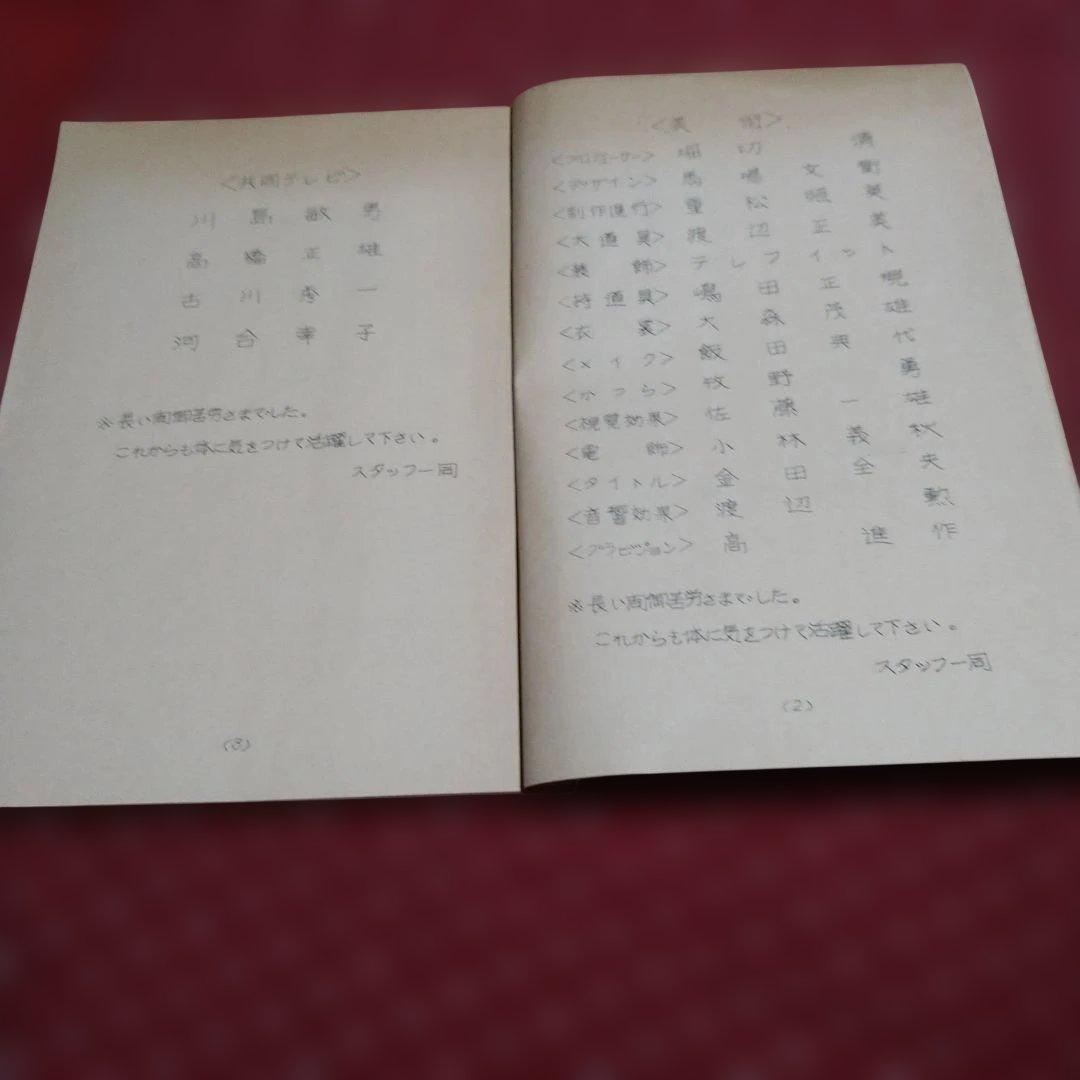 <美術>
<プロデューサー> 堀切 清
<デザイン> 馬場文衛
<制作進行> 重松照英
<大道具> 渡辺正美
<装飾> テレフィット
<持道具> 嶋田正
<衣裳> 大森茂雄
<メイク> 飯田典代
<かつら> 牧野 勇
<視覚効果> 佐藤一雄
<電飾> 小林義秋
<タイトル> 金田全央
<音響効果> 渡辺 勲
<プラビジョン> 高 進作
※長い間御苦労さまでした。
これからも体に気をつけて活躍して下さい。
スタッフ一同
(2)
<共同テレビ>
川島敏男
高橋正雄
古川秀一
河合幸子
※長い間御苦労さまでした。
これからも体に気をつけて活躍して下さい。
スタッフ一同
(3)